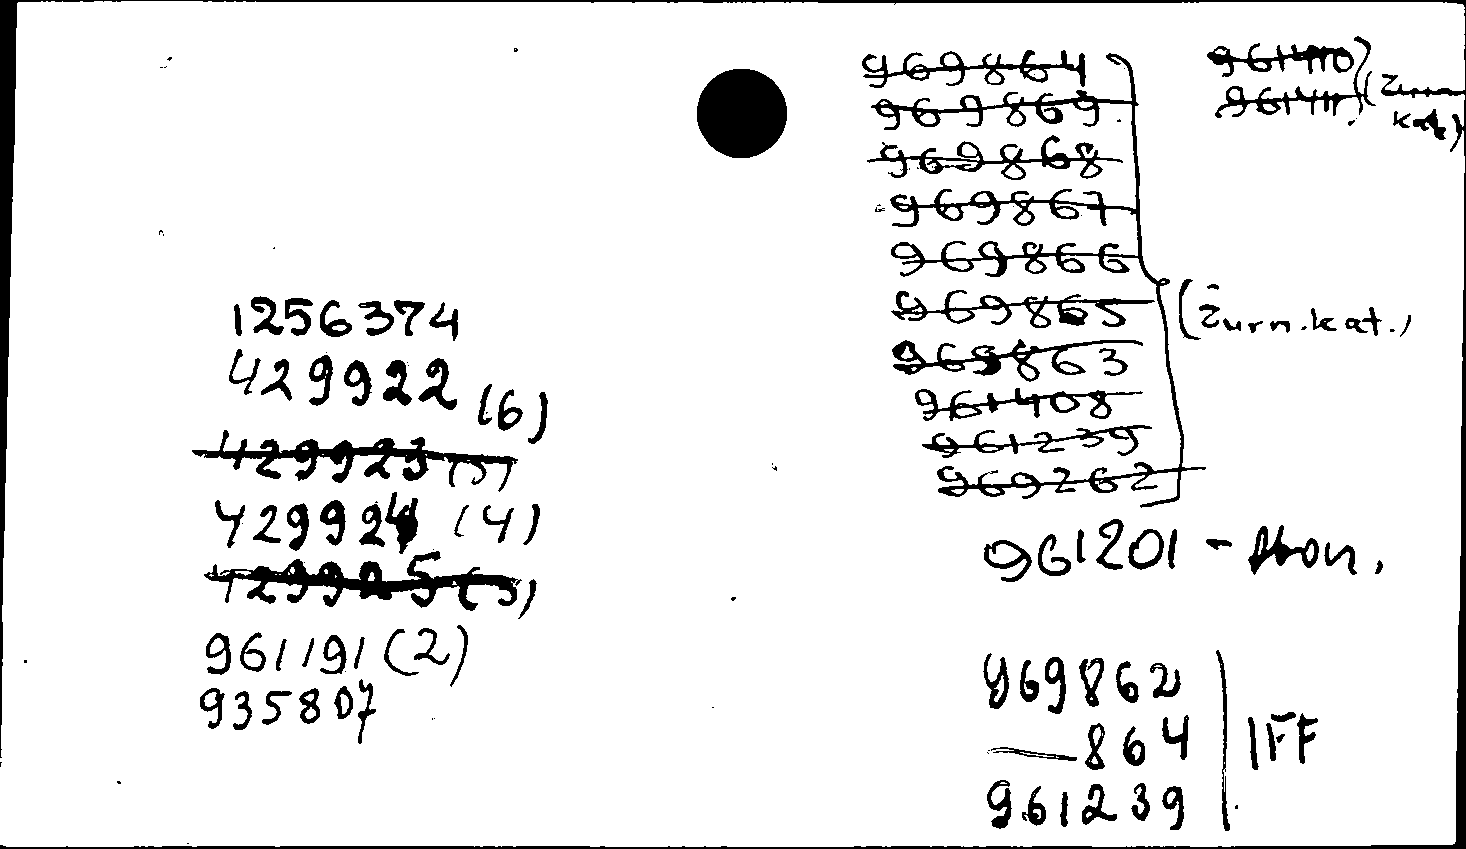 1256374
429922 (6)
429923 (5)
429924 (4)
429925 (3)
961191 (2)
935807
969864
969869
969868
969867
969866
969865
969863
961408
961239
969262
(Žurn. kat.)
961410
961411
(Žurn. kat.)
961201 - Abon.
969862
— 864
961239
IFF